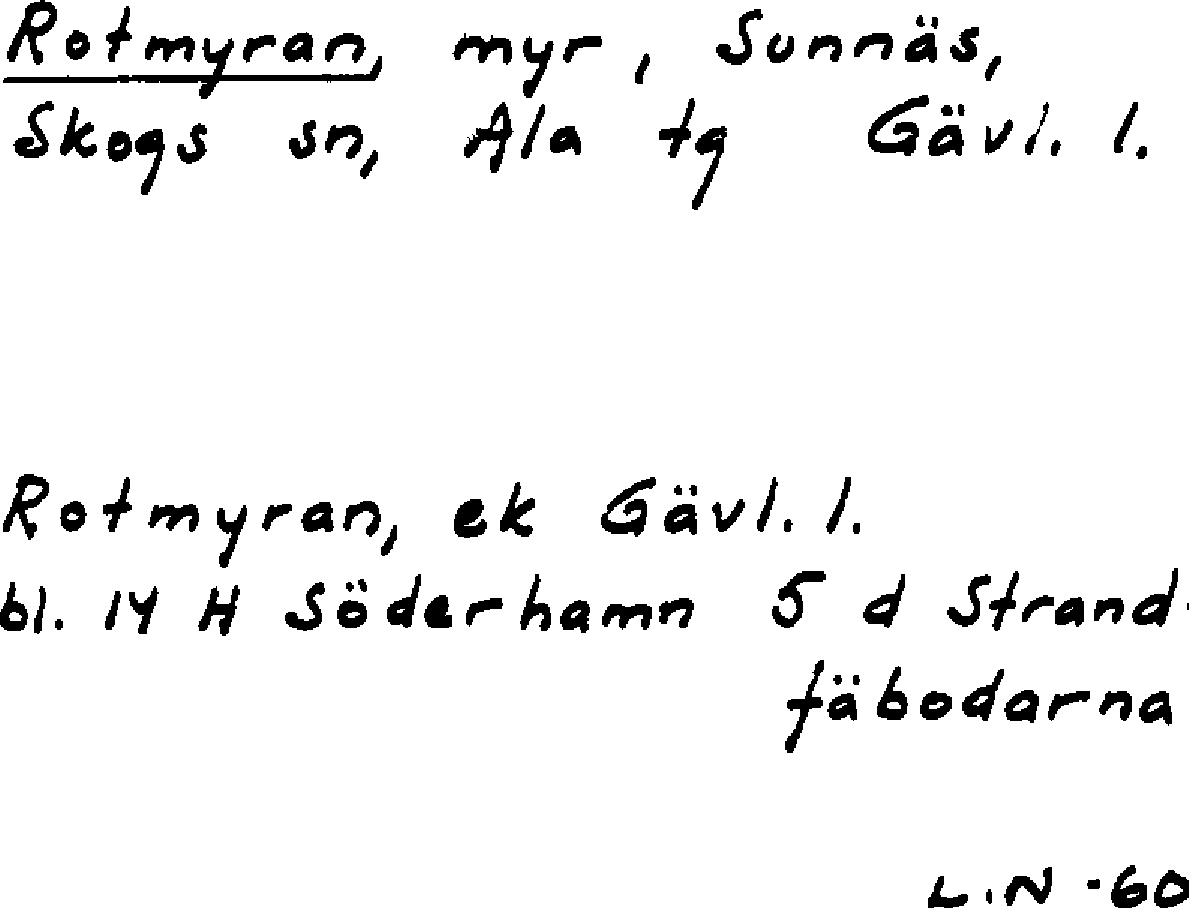 Rotmyran, myr, Sunnäs,
Skogs sn, Ala tg Gävl. l.
Rotmyran, ek Gävl. l.
bl. 14 H Söderhamn 5 d Strand-
fäbodarna
L.N -60